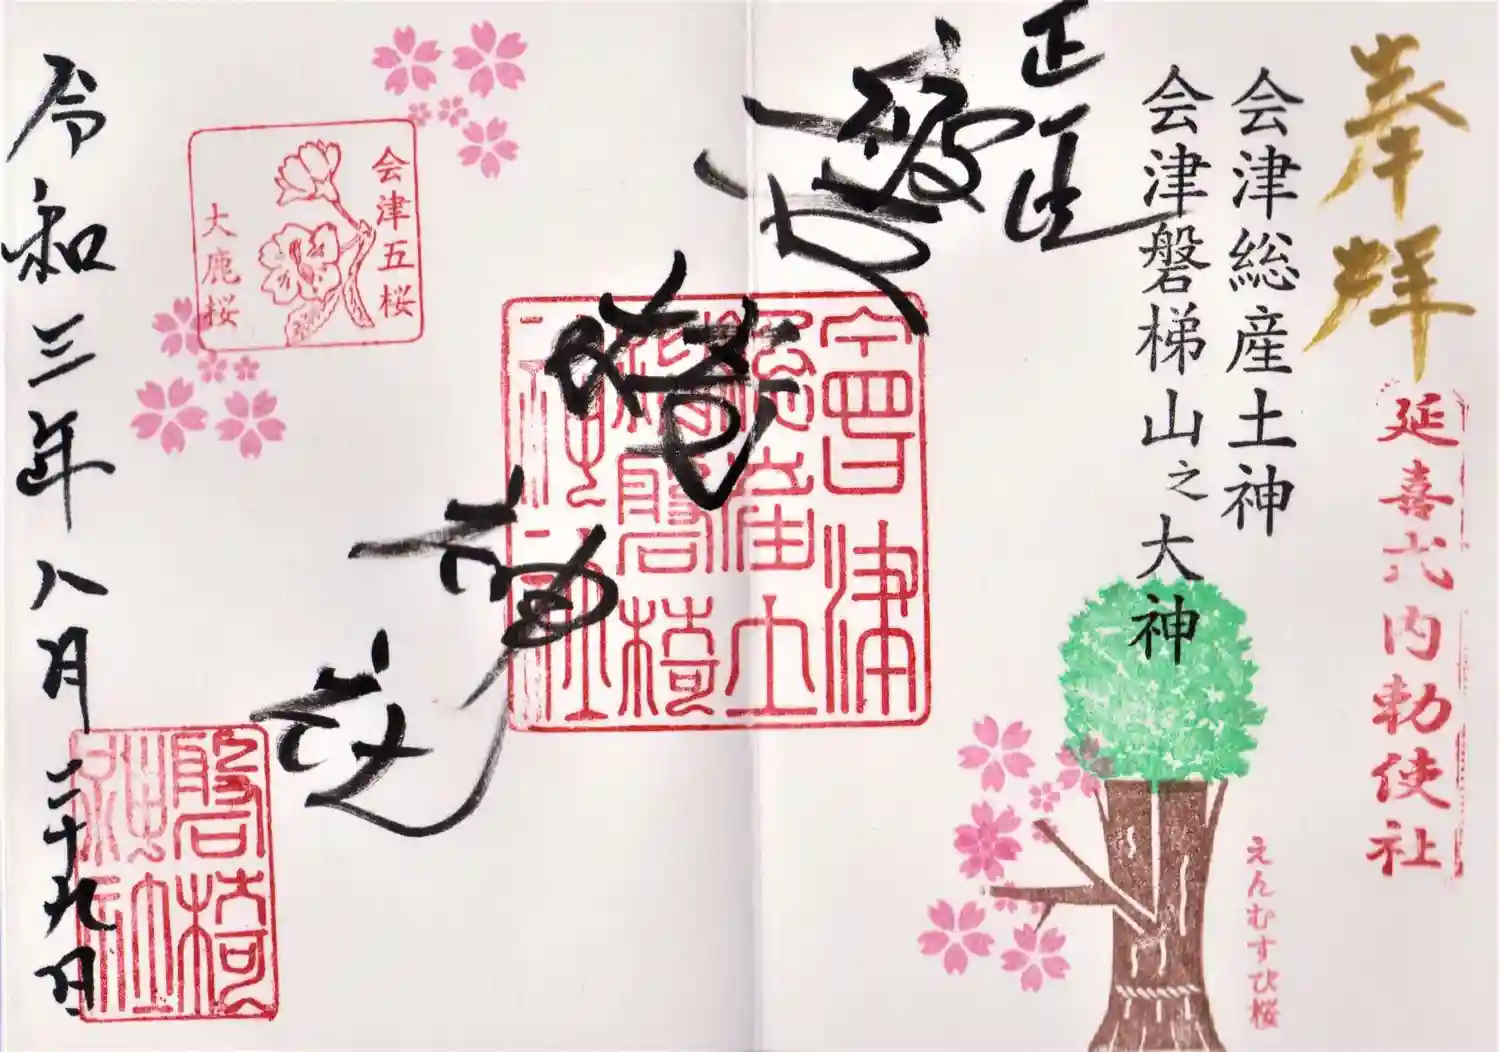 奉拝
延喜式内勅使社
会津総産土神
会津磐梯山之大神
えんむすび桜
正一位
磐椅神社
會津
総産土
磐椅
神社
会津五桜
大鹿桜
磐椅
神社
令和三年八月二十九日